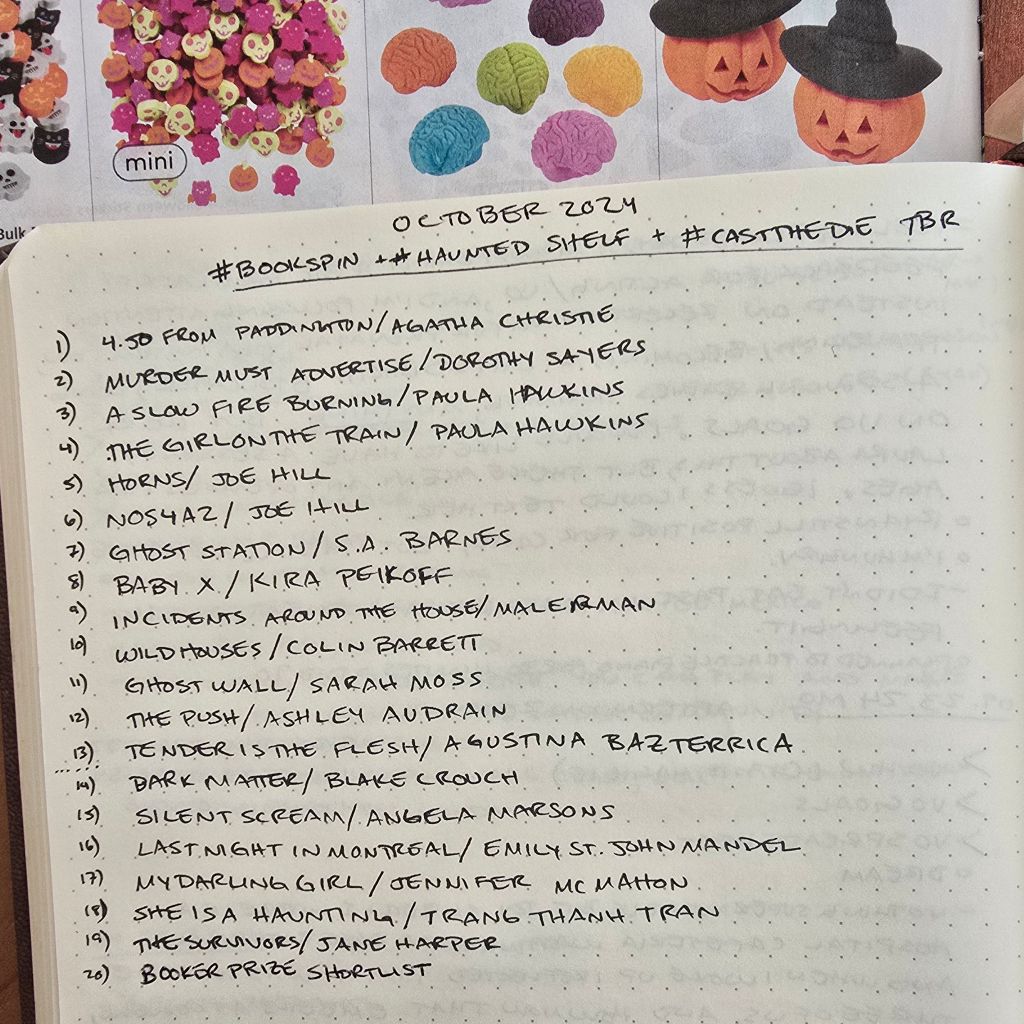 mini
Bulk
OCTOBER 2024
#BOOKSPIN + #HAUNTED SHELF + #CASTTHEDIE TBR
1) 4.50 FROM PADDINGTON/AGATHA CHRISTIE
2) MURDER MUST ADVERTISE/DOROTHY SAYERS
3) A SLOW FIRE BURNING/PAULA HAWKINS
4) THE GIRL ON THE TRAIN/PAULA HAWKINS
5) HORNS/JOE HILL
6) NOS4A2/JOE HILL
7) GHOST STATION/S.A. BARNES
8) BABY X/KIRA PEIKOFF
9) INCIDENTS AROUND THE HOUSE/MALERMAN
10) WILD HOUSES/COLIN BARRETT
11) GHOST WALL/SARAH MOSS
12) THE PUSH/ASHLEY AUDRAIN
13) TENDER IS THE FLESH/AGUSTINA BAZTERRICA
14) DARK MATTER/BLAKE CROUCH
15) SILENT SCREAM/ANGELA MARSONS
16) LAST NIGHT IN MONTREAL/EMILY ST. JOHN MANDEL
17) MY DARLING GIRL/JENNIFER MCMAHON
18) SHE IS A HAUNTING/TRANG THANH TRAN
19) THE SURVIVORS/JANE HARPER
20) BOOKER PRIZE SHORTLIST